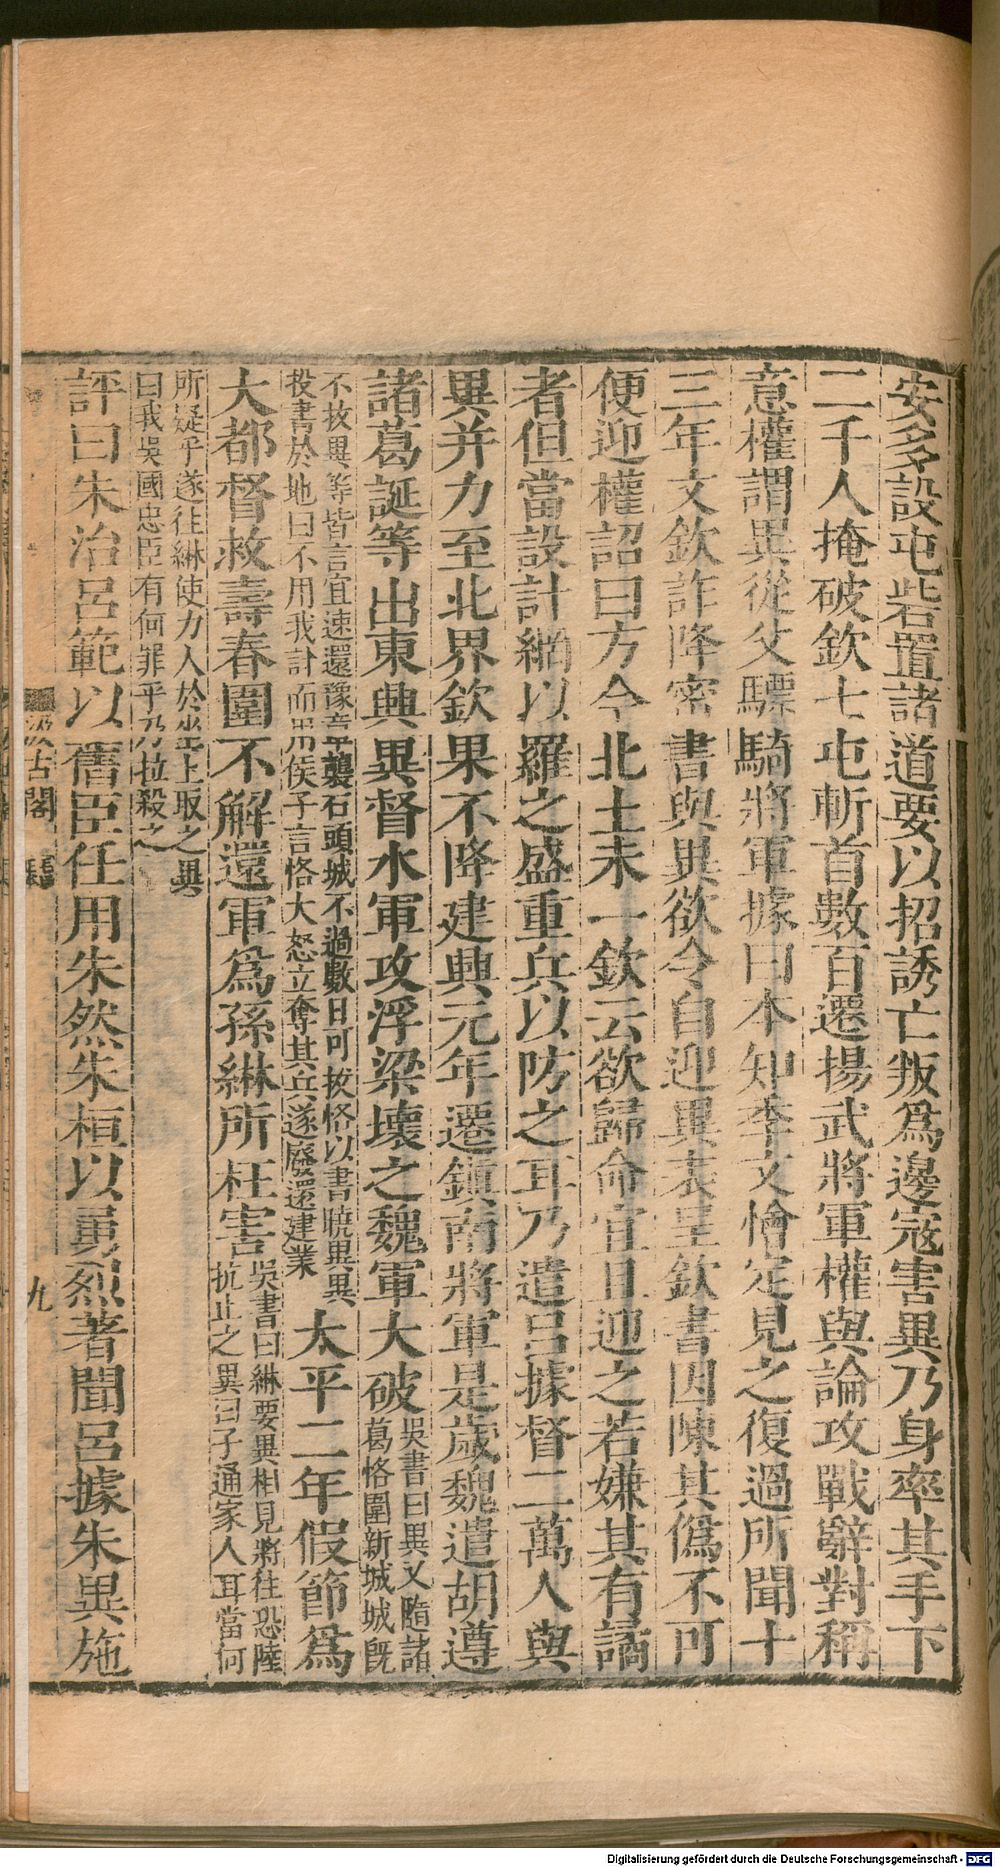 安多設屯砦置諸道要以招誘亡叛爲邊寇害異乃身率其手下
二千人掩破欽七屯斬首數百遷揚武將軍權與論攻戰辭對稱
意權謂異從父驃騎將軍據曰本知季文𢢔定見之復過所聞十
三年文欽詐降密書與異欲令自迎異表呈欽書因陳其僞不可
便迎權詔曰方今北土未一欽云欲歸命宜且迎之若嫌其有譎
者但當設計網以羅之盛重兵以防之耳乃遣呂據督二萬人與
異并力至北界欽果不降建興元年遷鎮南將軍是歲魏遣胡遵
諸葛誕等出東興異督水軍攻浮梁壞之魏軍大破
吳書曰異又隨諸
葛恪圍新城城旣
不拔異等皆言宜速還豫章襲石頭城不過數日可拔恪以書曉異異
投書於地曰不用我計而用侯子言恪大怒立奪其兵遂廢還建業
太平二年假節爲
大都督救壽春圍不解還軍爲孫綝所枉害
吳書曰綝要異相見將往恐陸
抗止之異曰子通家人耳當何
所疑乎遂往綝使力人於坐上取之異
曰我吳國忠臣有何罪乎乃拉殺之
評曰朱治呂範以舊臣任用朱然朱桓以勇烈著聞呂據朱異施
汲古閣
九
Digitalisierung gefördert durch die Deutsche Forschungsgemeinschaft - DFG